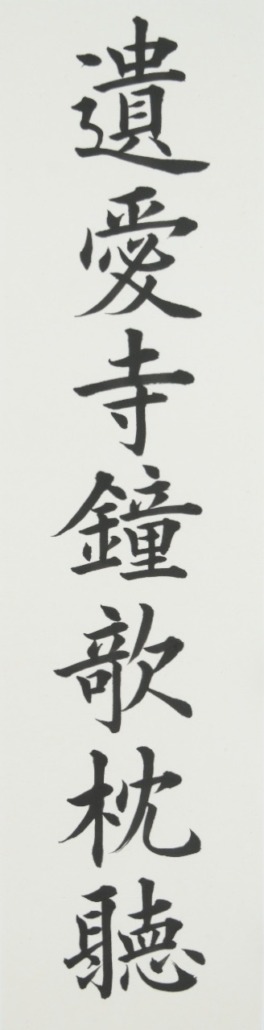 遺愛寺鐘欹枕聽